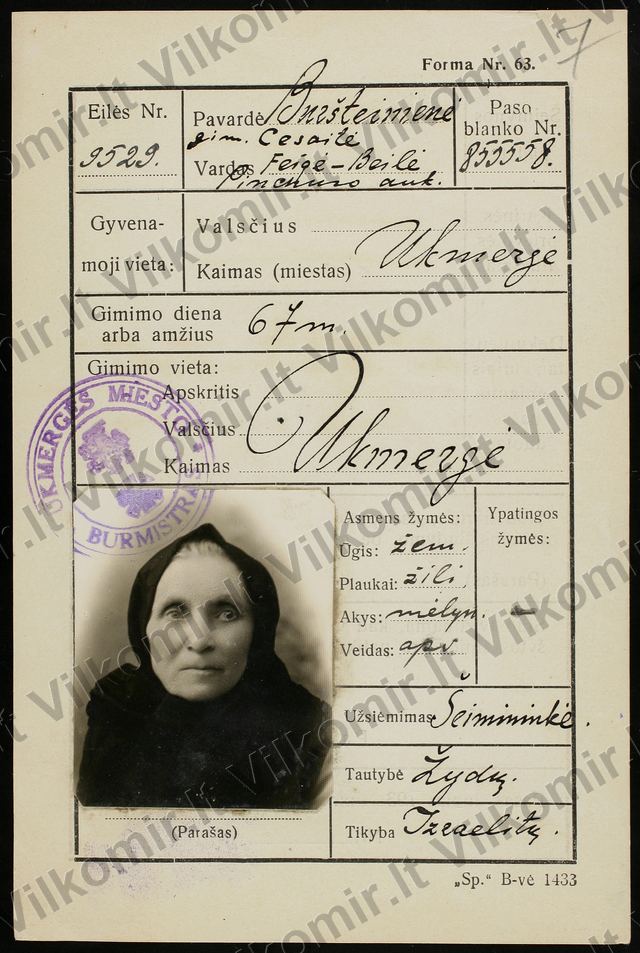 7
Forma Nr. 63.
Eilės Nr.
9529.
Pavardė Buršteinienė
gim. Cesaitė
Vardas Feigė-Beilė
Pinchuso duk.
Paso
blanko Nr.
855558.
Gyvena-
moji vieta:
Valsčius
Kaimas (miestas) Ukmergė
Gimimo diena
arba amžius 67 m.
Gimimo vieta:
Apskritis
Valsčius
Kaimas Ukmergė
UKMERGĖS MIESTO
BURMISTRAS
Asmens žymės:
Ūgis: žem.
Plaukai: žili
Akys: mėlyn.
Veidas: apv
Ypatingos
žymės:
–
Užsiėmimas Šeimininkė.
Tautybė Žydų.
Tikyba Izraelitų.
(Parašas)
„Sp.“ B-vė 1433
Vilkomir.lt